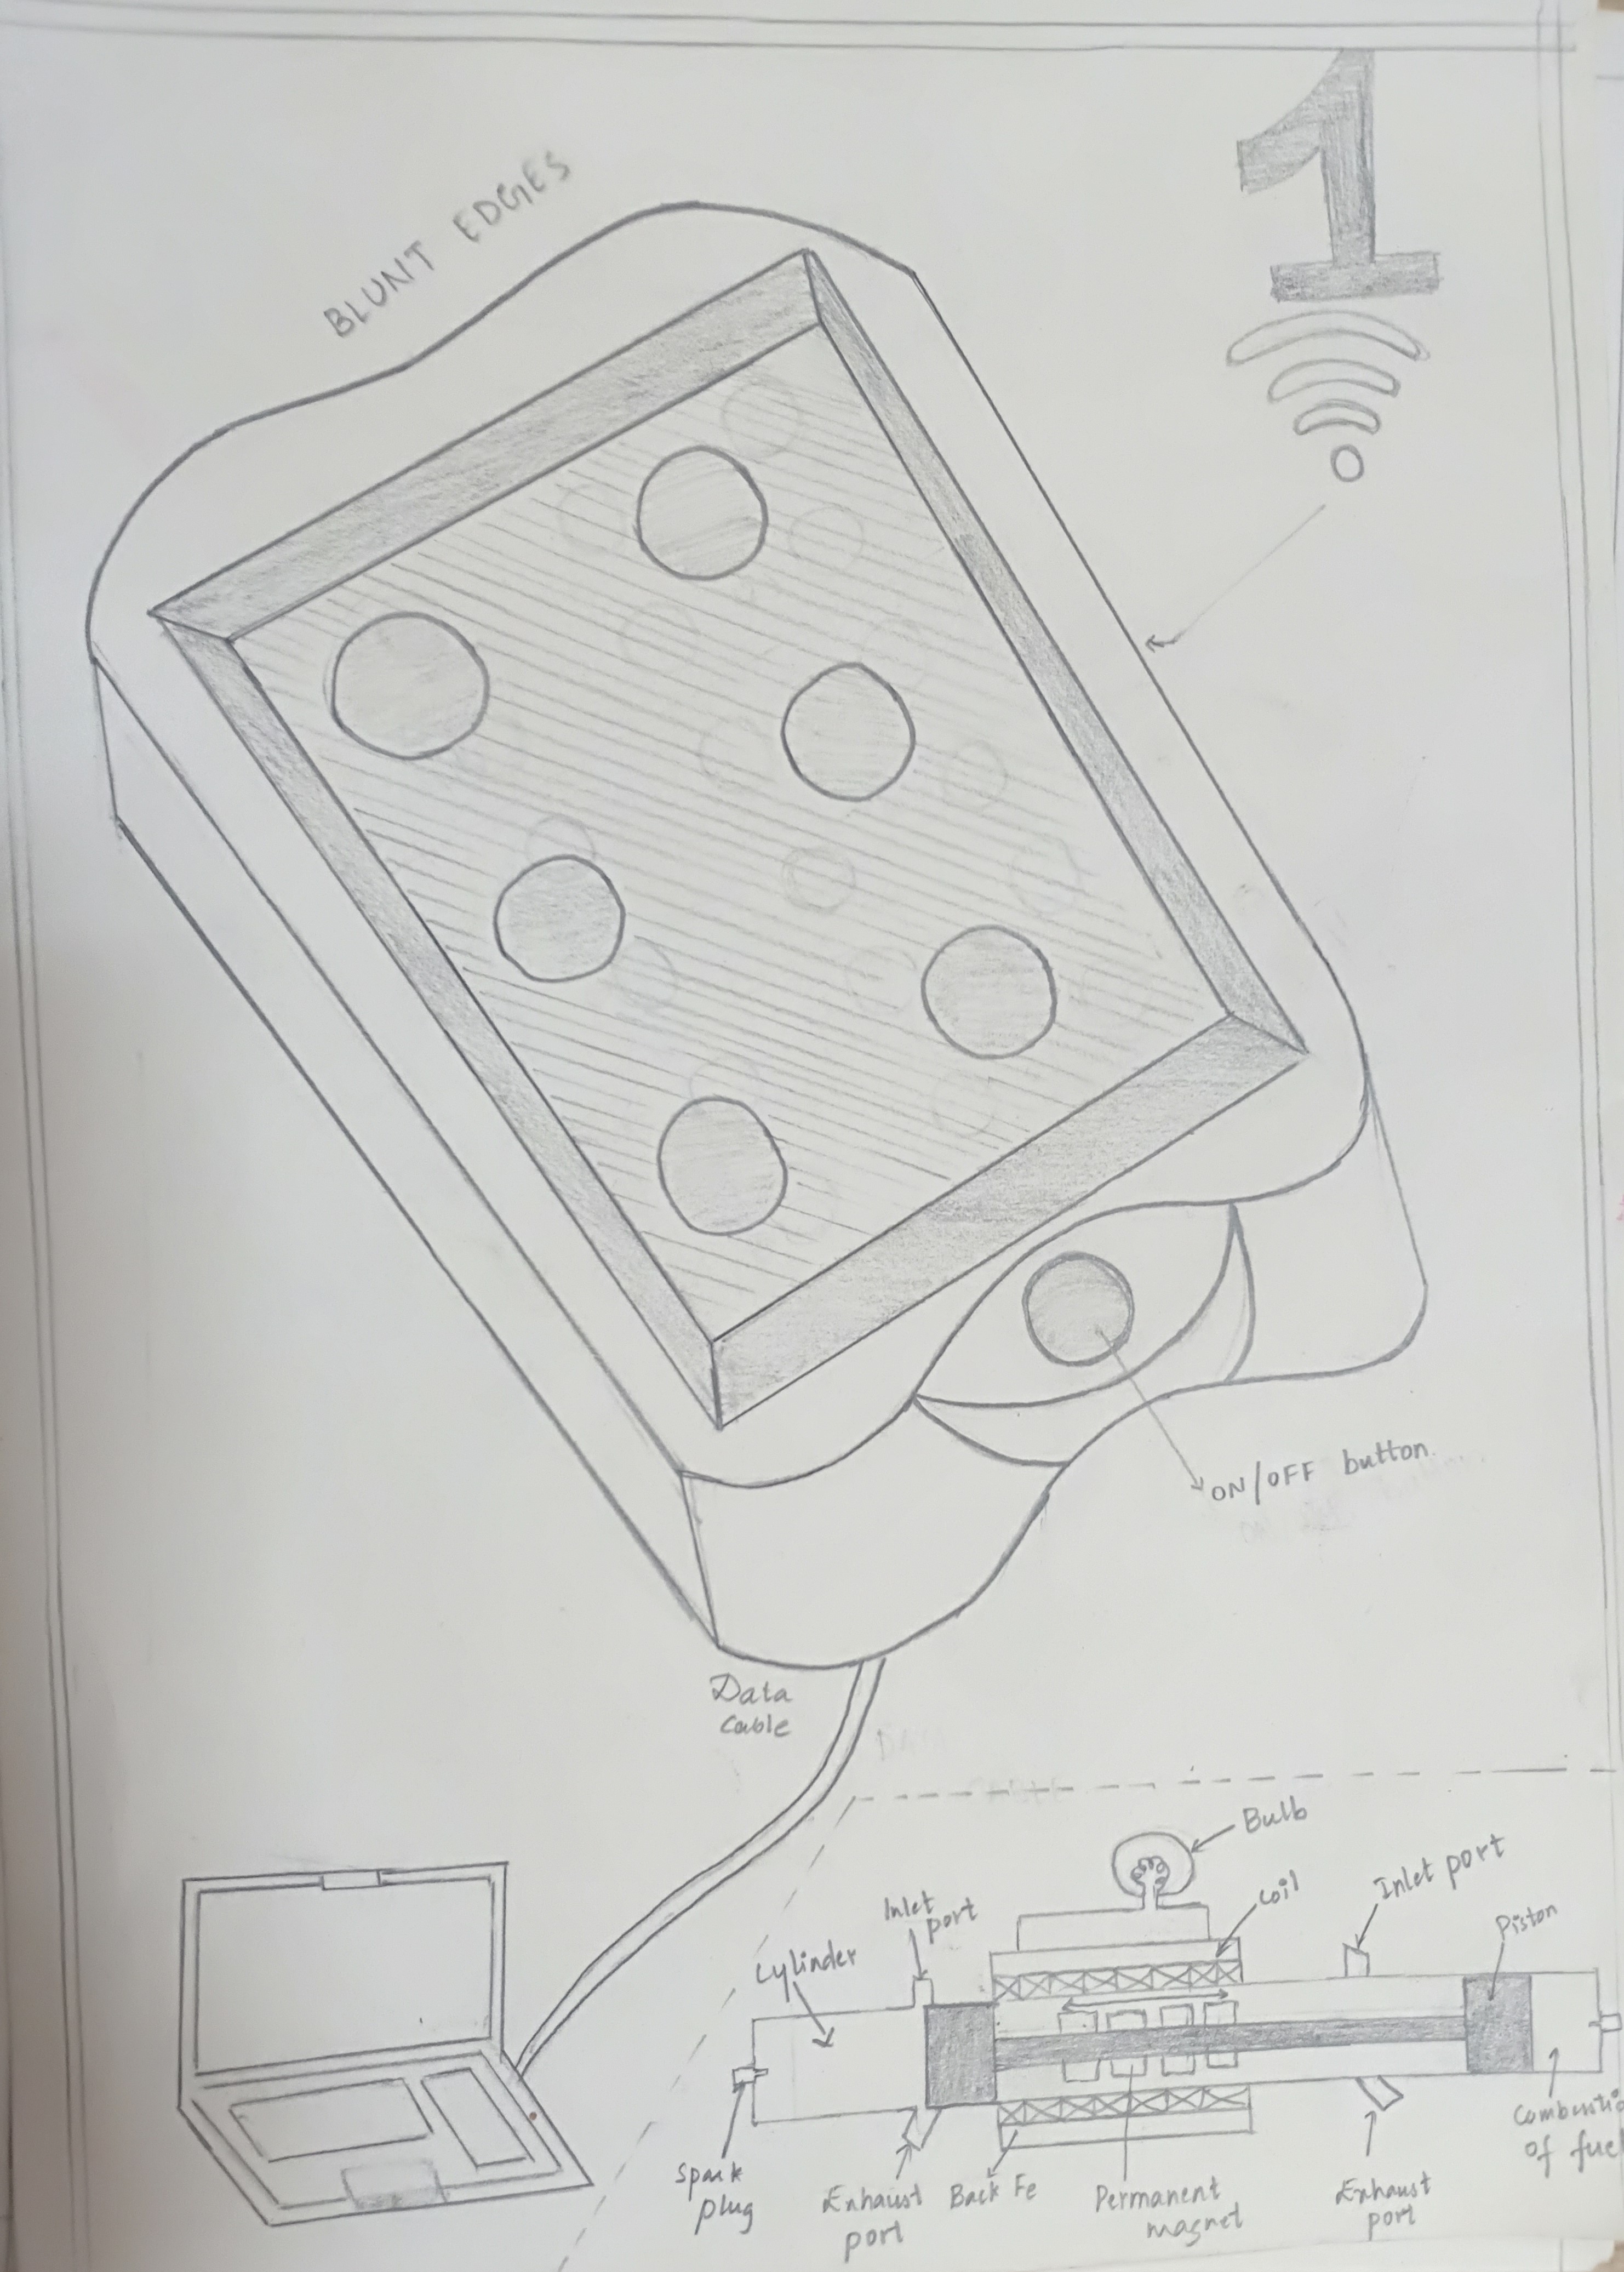 1
BLUNT EDGES
ON/OFF button
Data
Cable
Bulb
Coil
Inlet port
Piston
Inlet
port
Cylinder
Spark
plug
Exhaust
port
Back Fe
Permanent
magnet
Exhaust
port
Combustio
of fuel